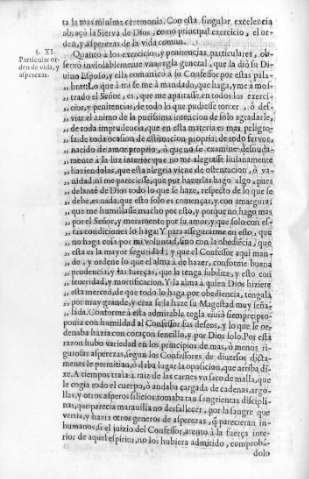 ta la mas minima ceremonia. Con esta singular excelencia
abraçò la Sierva de Dios, como principal exercicio, el or-
den, y asperezas de la vida comun.
§. XI.
Particular or-
den de vida, y
asperezas.
Quanto à los exercicios, y penitencias particulares, ob-
servò inviolablemente vna regla general, que la diò su Di-
uino Esposo, y ella comunicò à su Confessor por estas pala-
bras: Lo que à mi se me à mandado, que haga, y me à mos-
trado el Señor, es, que me aparte en todos los exerci-
,, cios, y penitencias, de todo lo que pudiesse torcer, ò des-
,, viar el animo de la purissima intencion de solo agradarle,
,, de toda imprudencia, que en esta materia es mas peligro-
,, sa: de toda ocasion de estimacion propria: de todo fervor
,, nacido del amor proprio, ò que no se examine desnuda-
,, mente à la luz interior: que no me alegrasse liuianamente
,, haziendolas, que esta alegria viene de ostentacion, ò va-
,, nidad: ni me pareciesse, que por hazerlas hago algo, pues
,, delante de Dios todo lo que se haze, respecto de lo que se
,, debe, es nada: que esto solo es començar, y con amargura:
,, que me humillasse mucho por esto, y porque no hago mas
,, por el Señor, y meramente por su amor, y que solo con es-
,, tas condiciones lo haga: Y para assegurarme en esto, que
,, no haga cosa por mi voluntad, sino con la obediēcia, que
,, esta es la mayor seguridad; y que el Confessor aqui man-
,, de, y ordene lo que el alma à de hazer, conforme buena
,, prudencia, y las fuerças, que la tenga subdita, y esto con
,, severidad, y mortificacion. Y la alma à quien Dios hiziere
,, esta merced, de que todo lo haga por obediencia, tengala
,, por muy grande, y crea se la haze su Magestad muy seña-
,, lada. Conforme à esta admirable regla viuiò siempre; pro-
ponia con humildad al Confessor sus deseos, y lo que se or-
denaba hazia con coraçon sencillo, y por Dios solo. Por esta
razon hubo variedad en los principios de mas, ò menos ri-
gurosas asperezas, segun los Confessores de diversos dicta-
menes le permitian, ò daba lugar la oposicion, que arriba di-
xe. A tiempos traìa à raiz de las carnes vn saco de malla, que
le cogia todo el cuerpo, ò andaba cargada de cadenas, argo-
llas, y otros asperos silicios: tomaba tan sangrientas discipli-
nas, que parecia marauilla no desfallecer, por la sangre que
vertia, y hazia otros generos de asperezas, q̃ parecieran in-
humanos, si el juizio del Confessor, atento à la fuerça inte-
rior de aquel espiritu, no los hubiera admitido, comprobā-
dolo